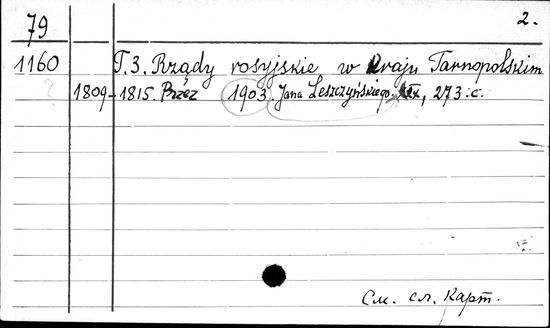 79 2.
1160 T.3. Rządy rosyjskie w Kraju Tarnopolskim
1809-1815. Przez 1903 Jana Leszczyńskiego. , 273 c.
См. сл. карт.